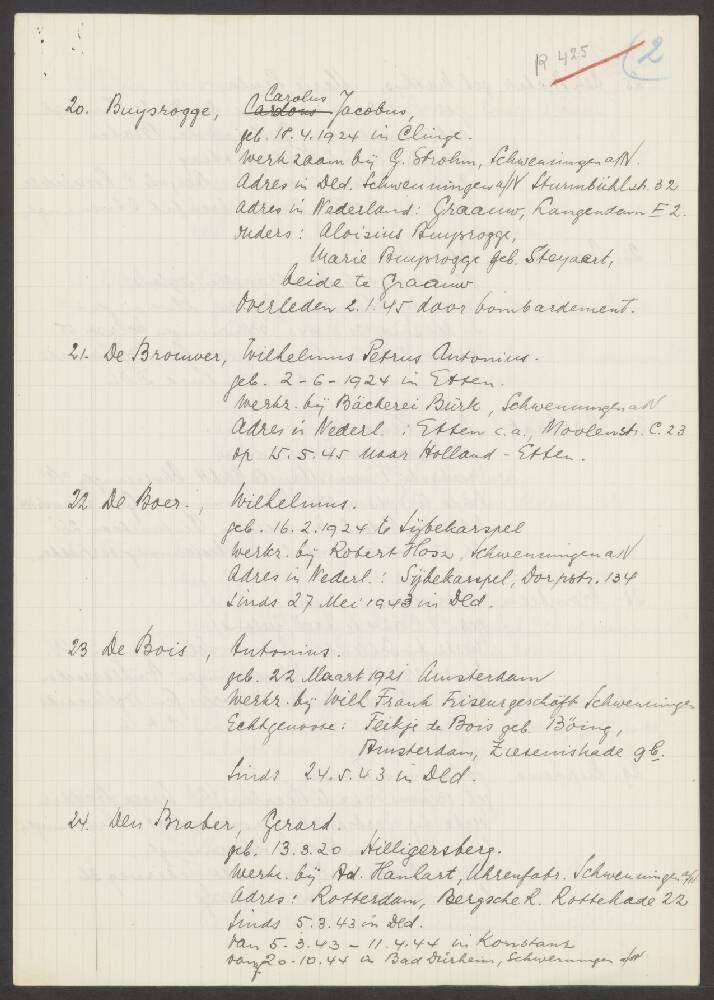 R 425 2
20. Buysrogge, Carolus Jacobus,
geb. 18.4.1924 in Clinge.
werkzaam bij G. Strohm, Schwenningen a/N.
Adres in Dld. Schwenningen a/N Sturmbühlstr. 32
adres in Nederland: Graauw, Langendam E 2.
ouders: Aloisius Buysrogge,
Marie Buysrogge geb. Steyaert,
beide te Graauw
Overleden 2.1.45 door bombardement.
21. De Brouwer, Wilhelmus Petrus Antonius.
geb. 2-6-1924 in Etten.
werkz. bij Bäckerei Bürk, Schwenningen a/N
Adres in Nederl.: Etten c.a., Moolenstr. C. 23
op 15.5.45 naar Holland - Etten.
22 De Boer, Wilhelmus.
geb. 16.2.1924 te Sijbekarspel
werkz. bij Robert Hosz, Schwenningen a/N
Adres in Nederl.: Sijbekarspel, Dorpstr. 134
sinds 27 Mei 1943 in Dld.
23 De Bois, Antonius.
geb. 22 Maart 1921 Amsterdam
werkz. bij Wilh Frank Friseurgeschäft Schwenningen
Echtgenoote: Feikje de Bois geb. Böing,
Amsterdam, 9b.
Sinds 24.5.43 in Dld.
24. Den Braber, Gerard.
geb. 13.3.20 Hilligersberg.
werkz. bij Ad. Hanhart, Uhrenfabr. Schwenningen a/N
Adres: Rotterdam, Bergsche R. Rottekade 22
sinds 5.3.43 in Dld.
van 5-3.43 - 11.4.44 in Konstanz
20-10.44 Bad Dürheim, Schwenningen a/N